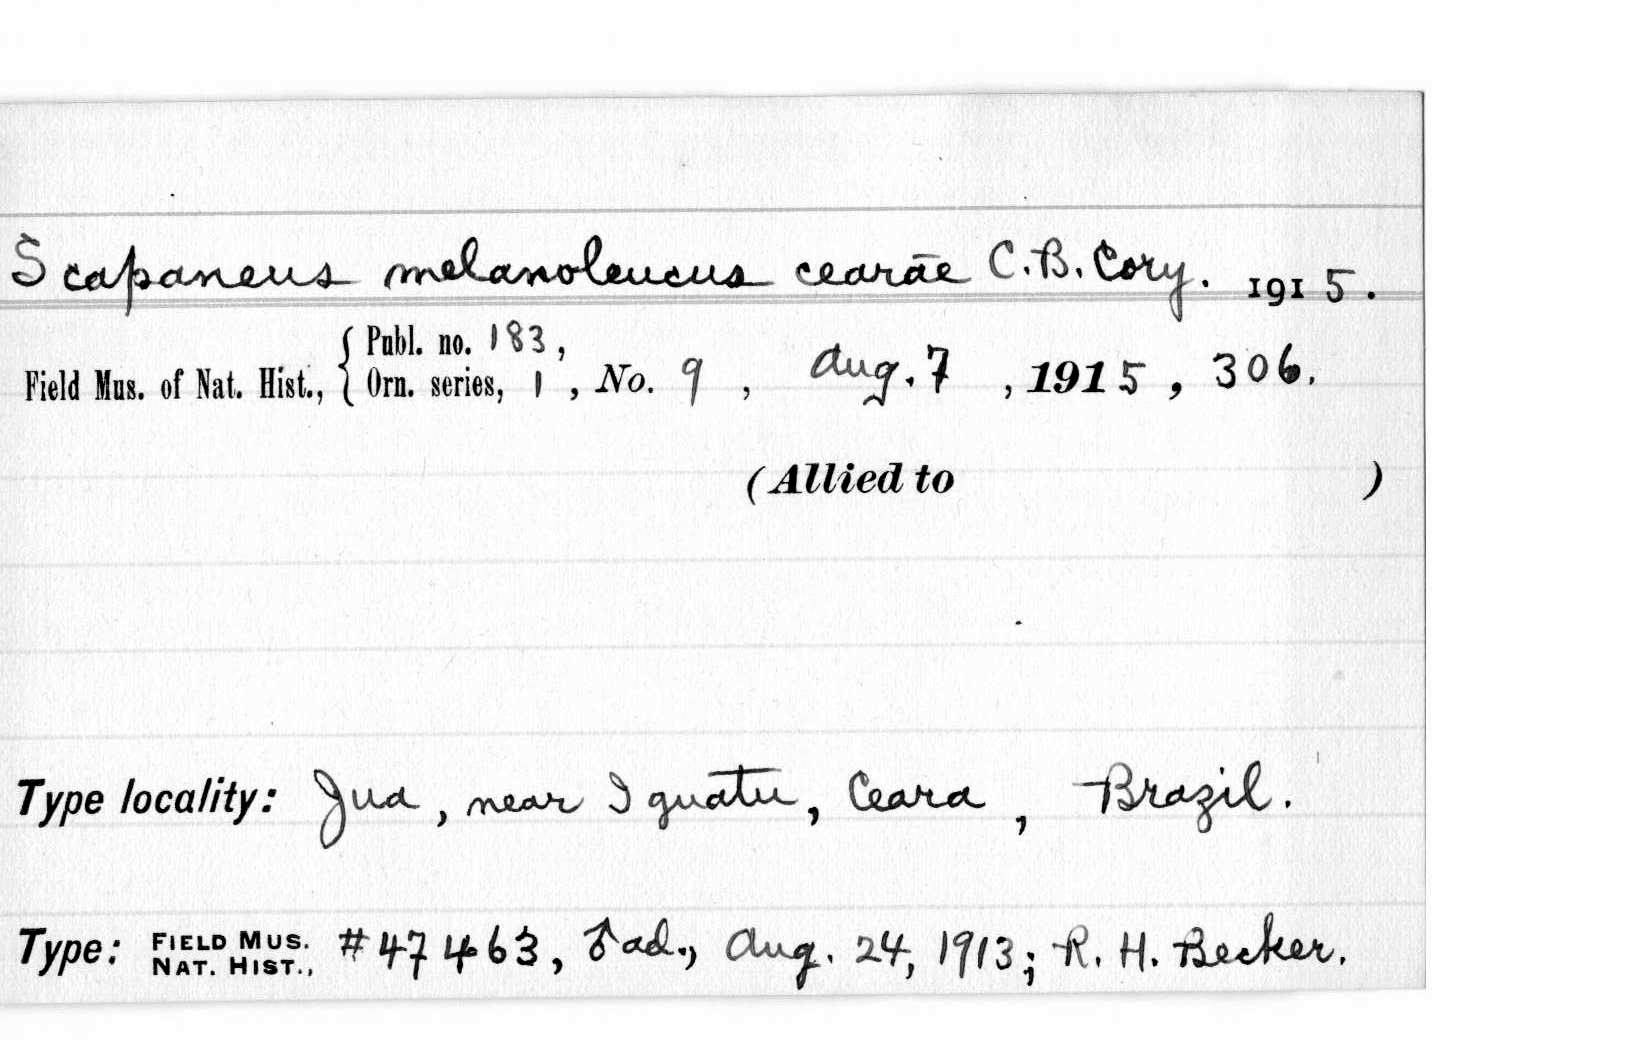 Scapaneus melanoleucus cearae C.B. Cory. 1915.
Publ. no. 183,
Field Mus. of Nat. Hist., Orn. series, 1, No. 9, Aug. 7, 1915, 306.
(Allied to )
Type locality: Jua, near Iguatu, Ceara, Brazil.
Type: FIELD MUS. NAT. HIST., #47463, ♂ ad., Aug. 24, 1913; R. H. Becker.